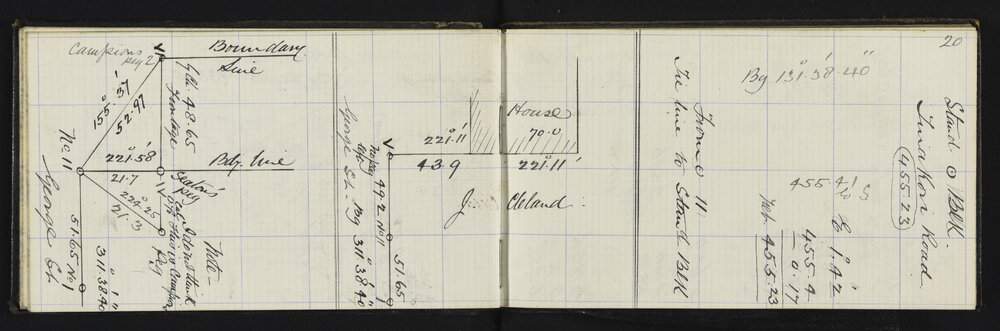 20
Campions
peg 2
Boundary
Line
155°.37'
52.97
Gth 48.65
Frontage
No 11
221°.58'
Bdy. Line
21.7
Peg
224°.25
21.3
Peg
51.65 No 1
311°.38'.40"
George St.
Note -
I don't think
George St. Bg 311°.38'.40"
No peg
49.2 No 11
51.65
221°.11'
43.9
House
70.0
221°.11'
J. Cleland.
Tie line to Stand BlK
From 11
Bg 131°.38'.40"
455.41
to S
E 1°.42'
455.4
0.17
455.23
Stand O BlK.
Road
455.23